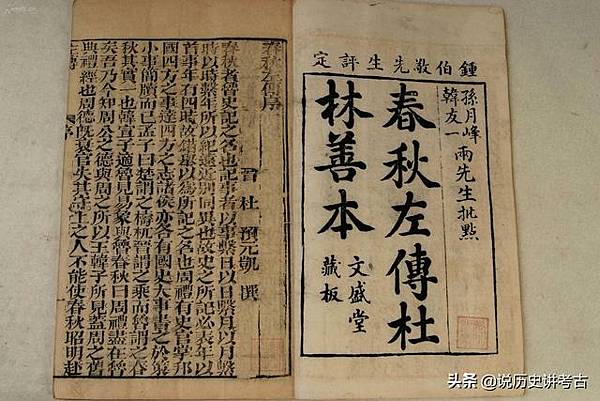 鍾伯敬先生評定
孫月峰
韓友一
兩先生批點
春秋左傳杜
林善本
文盛堂
藏板
春秋左傳序
晉 杜 預元凱 撰
春秋者魯史記之名也記事者以事繫日以日繫月以月繫
時以時繫年所以紀遠近別同異也故史之所記必表年以
首事年有四時故錯舉以爲所記之名也周禮有史官掌邦
國四方之事達四方之志諸侯亦各有國史大事書之於策
小事簡牘而已孟子曰楚謂之檮杌晉謂之乘而魯謂之春
秋其實一也韓宣子適魯見易象與魯春秋曰周禮盡在魯
矣吾乃今知周公之德與周之所以王韓子所見蓋周之舊
典禮經也周德既衰官失其守上之人不能使春秋昭明赴
头条 @说历史讲考古